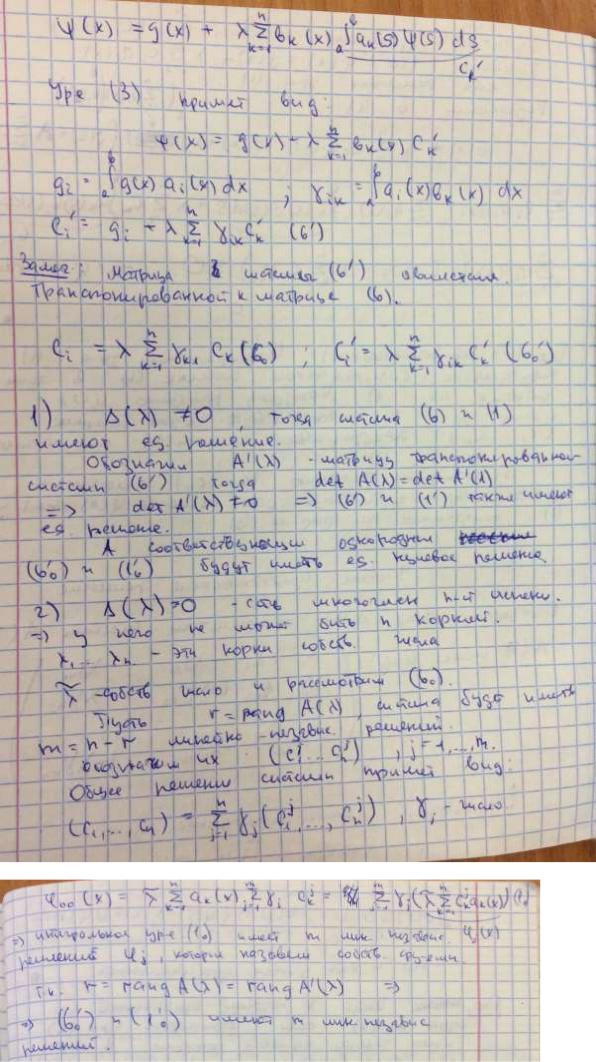 ψ(x) = g(x) + λ∑_{k=1}^{n} b_k(x) ∫_a^b a_k(s) ψ(s) ds
c_k'
Ур-е (3) примет вид:
ψ(x) = g(x) + λ ∑_{k=1}^{n} b_k(x) c_k'
g_i = ∫_a^b g(x) a_i(x) dx ; γ_{ik} = ∫_a^b a_i(x) b_k(x) dx
c_i' = g_i + λ ∑_{k=1}^{n} γ_{ik} c_k' (6')
Замеч: Матрица системы (6') является
транспонированной к матрице (6).
c_i = λ ∑_{k=1}^{n} γ_{ki} c_k (6_0) ; c_i' = λ ∑_{k=1}^{n} γ_{ik} c_k' (6_0')
1) Δ(λ) ≠ 0, тогда система (6) и (1)
имеют ед решение.
Обозначим A'(λ) - матрицу транспонированной
системы (6') тогда det A(λ) = det A'(λ)
=> det A'(λ) ≠ 0 => (6') и (1') также имеют
ед. решение.
А соответствующие однородные
(6_0') и (1_0') будут иметь ед. нулевое решение
2) Δ(λ) = 0 - есть многочлен n-й степени.
=> у него не может быть n корней.
λ_1 ... λ_n - эти корни собств. числа
λ̃ - собств число и рассмотрим (6_0).
Пусть r = rang A(λ), система будет иметь
m = n - r линейно-независ. решений.
обозначим их (c_1^j ... c_n^j), j = 1, ..., m.
Общее решение системы примет вид:
(c_1, ..., c_n) = ∑_{j=1}^{n} γ_j (c_1^j, ..., c_n^j), γ_j - число
φ_{00}(x) = λ̃ ∑_{k=1}^{n} a_k(x) ∑_{j=1}^{m} γ_j c_k^j = ∑_{j=1}^{m} γ_j (λ̃ ∑_{k=1}^{n} c_k^j a_k(x))
=> интегральное ур-е (1_0) имеет m лин. независ. φ_j(x)
решений φ_j, которые назовем собств. функциями.
т.к. r = rang A(λ) = rang A'(λ) =>
=> (6_0') и (1_0') имеют m лин. независ
решений.